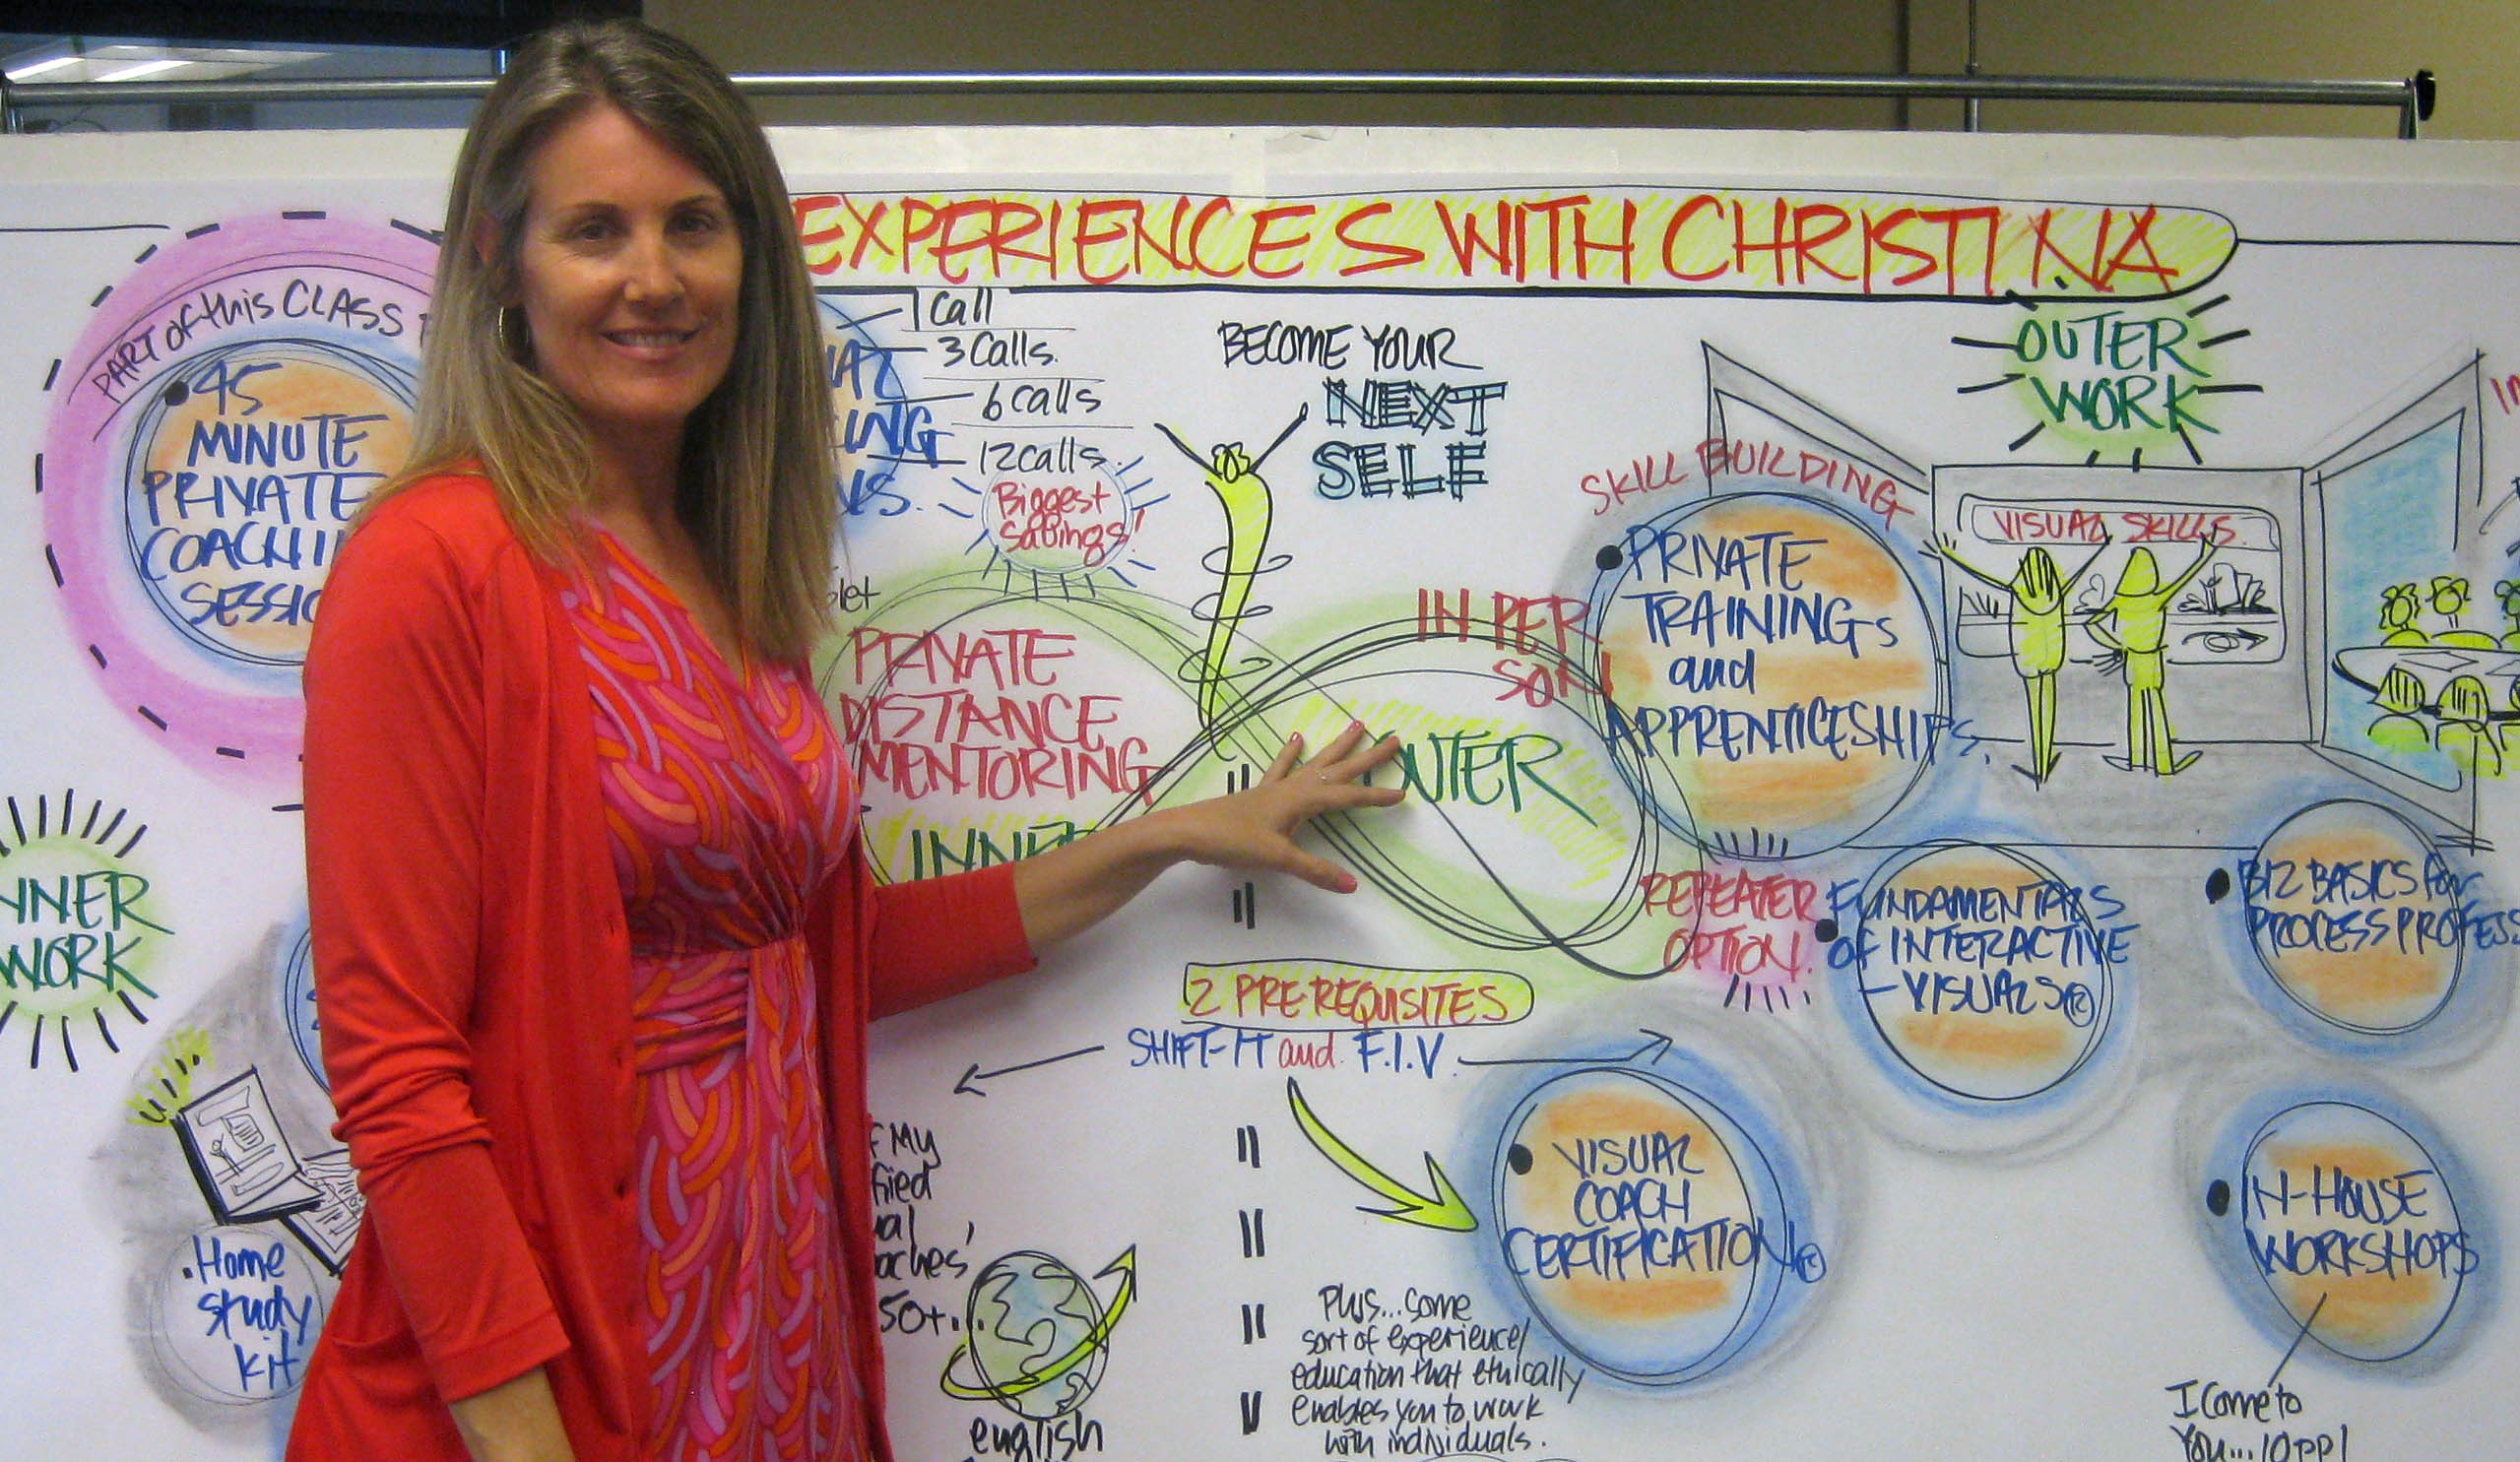 EXPERIENCES WITH CHRISTINA
PART of this CLASS
45
MINUTE
PRIVATE
COACHI
SESSIO
1 Call
3 Calls.
6 Calls
12 calls.
Biggest
Savings!
BECOME YOUR
NEXT
SELF
OUTER
WORK
SKILL BUILDING
PRIVATE
TRAININGS
and
APPRENTICESHIPS.
VISUAL SKILLS.
IN PER
SON
PRIVATE
DISTANCE
MENTORING
INNE
OUTER
INNER
WORK
REPEATER
OPTION.
FUNDAMENTALS
OF INTERACTIVE
-VISUALS©
BIZ BASICS for
PROCESS PROFES
2 PRE-REQUISITES
SHIFT-IT and F.I.V.
VISUAL
COACH
CERTIFICATION©
IN-HOUSE
WORKSHOPS
I Come to
You...10 PPl
.Home
study
kit
My
50+...
english
Plus...some
sort of experience/
education that ethically
enables you to work
with individuals.